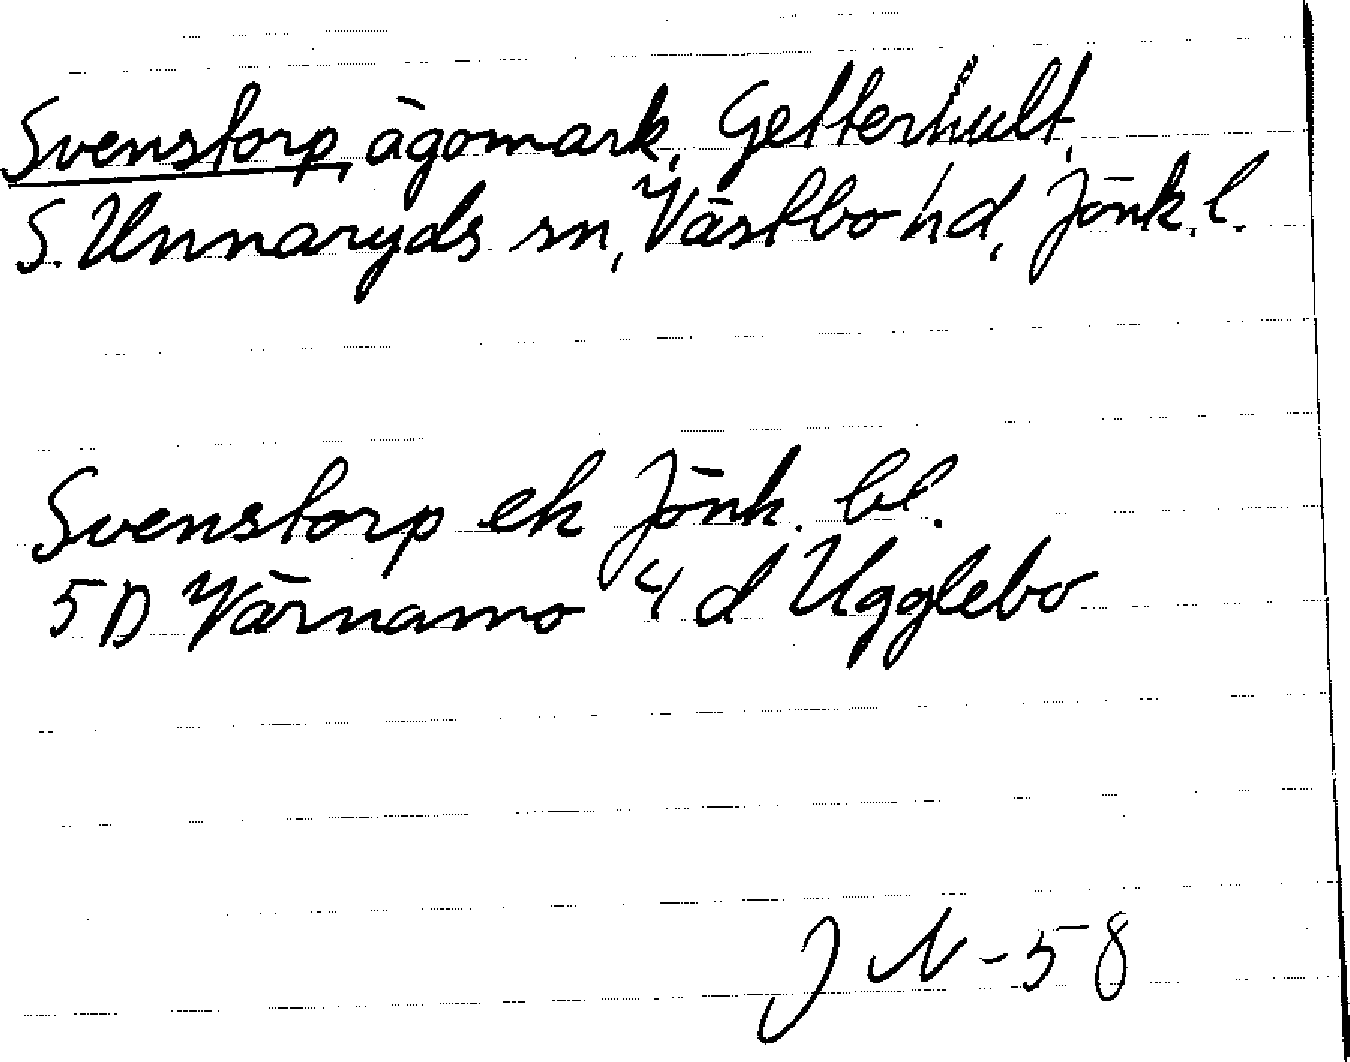 Svenstorp, ägomark, Getterhult,
S. Unnaryds sn, Västbo hd, Jönk. l.
Svenstorp ek Jönk. bl.
5D Värnamo 4 d Ugglebo
J N - 58